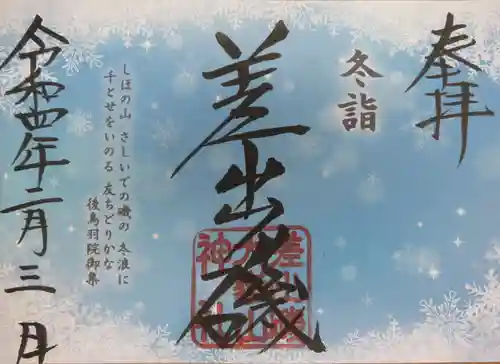 奉拝
冬詣
差出磯
しほの山 さしいでの磯の 冬浪に
千とせをいのる 友ちどりかな
後鳥羽院御集
令和四年二月三日